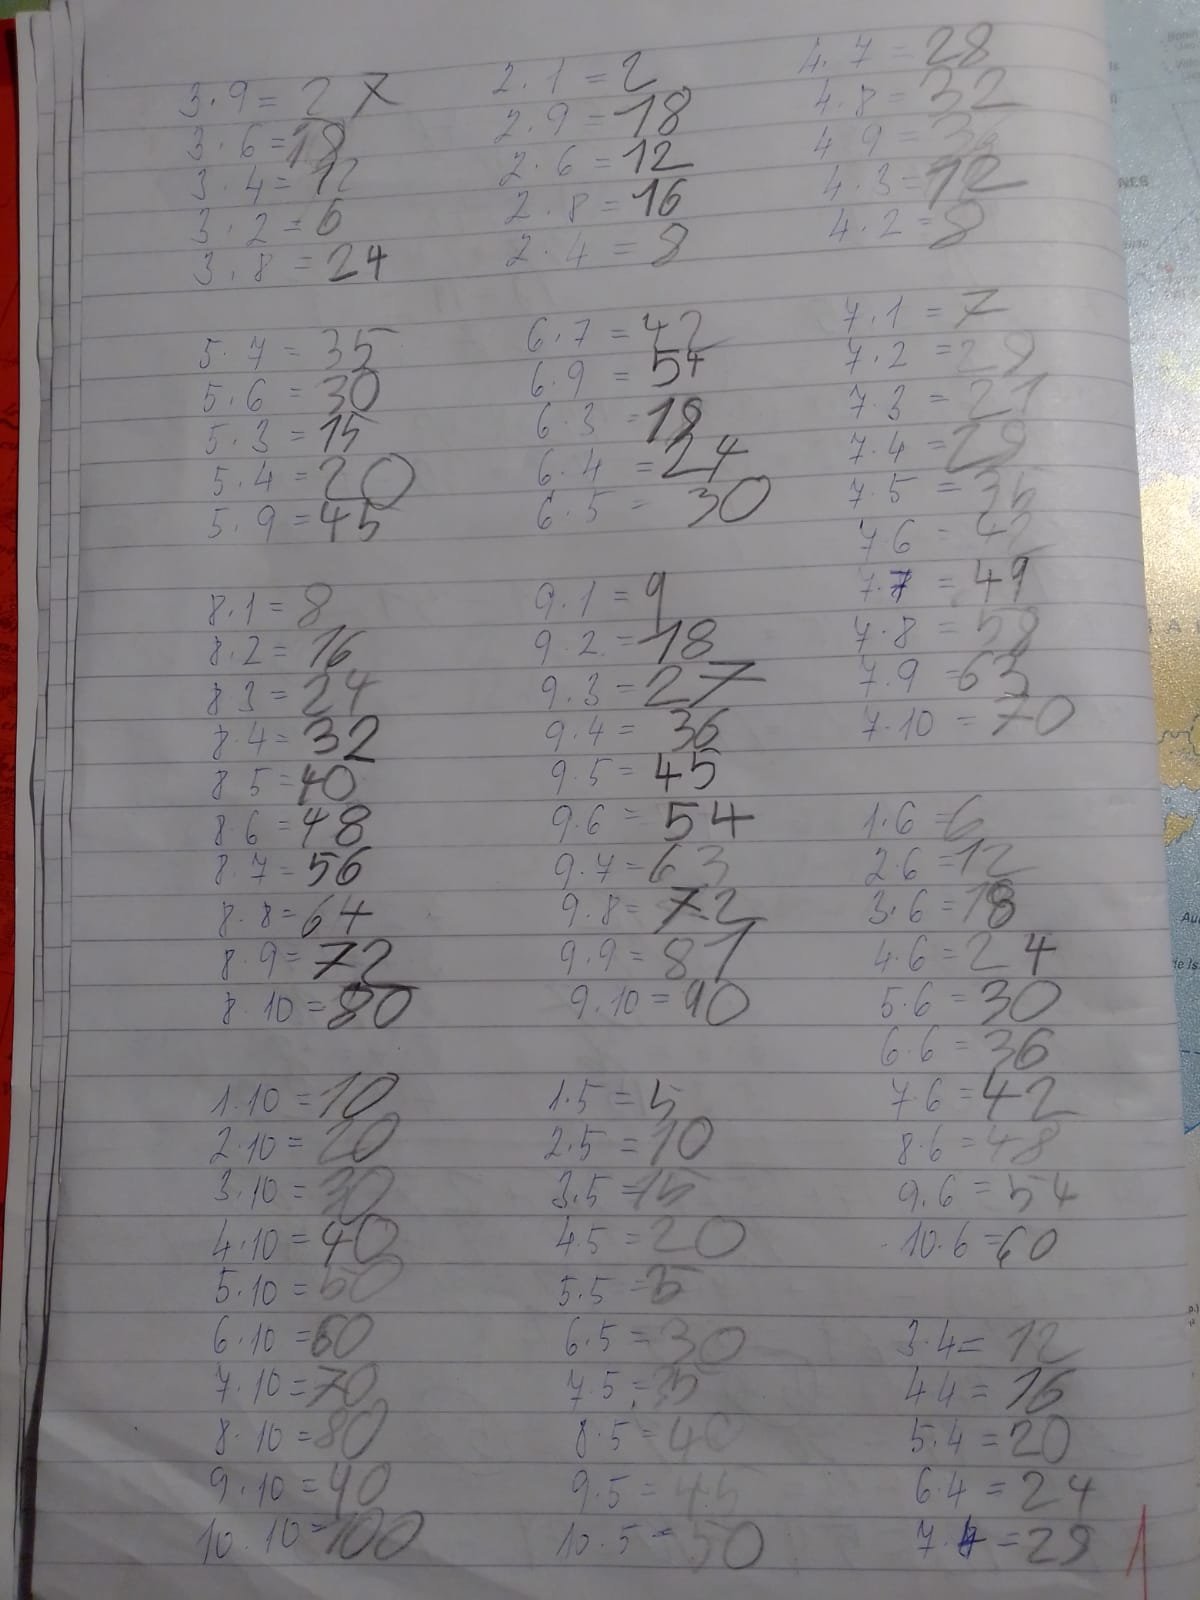 3·9=27
3·6=18
3·4=12
3·2=6
3·8=24
2·1=2
2·9=18
2·6=12
2·8=16
2·4=8
4·7=28
4·8=32
4·9=36
4·3=12
4·2=8
5·7=35
5·6=30
5·3=15
5·4=20
5·9=45
6·7=42
6·9=54
6·3=18
6·4=24
6·5=30
7·1=7
7·2=
7·3=21
7·4=28
7·5=35
7·6=42
7·7=49
7·8=58
7·9=63
7·10=70
8·1=8
8·2=16
8·3=24
8·4=32
8·5=40
8·6=48
8·7=56
8·8=64
8·9=72
8·10=80
9·1=9
9·2=18
9·3=27
9·4=36
9·5=45
9·6=54
9·7=63
9·8=72
9·9=81
9·10=90
1·6=6
2·6=12
3·6=18
4·6=24
5·6=30
6·6=36
7·6=42
8·6=48
9·6=54
10·6=60
1·10=10
2·10=20
3·10=30
4·10=40
5·10=50
6·10=60
7·10=70
8·10=80
9·10=90
10·10=100
1·5=5
2·5=10
3·5=15
4·5=20
5·5=
6·5=30
7·5=35
8·5=40
9·5=45
10·5=50
3·4=12
4·4=16
5·4=20
6·4=24
7·4=28
1